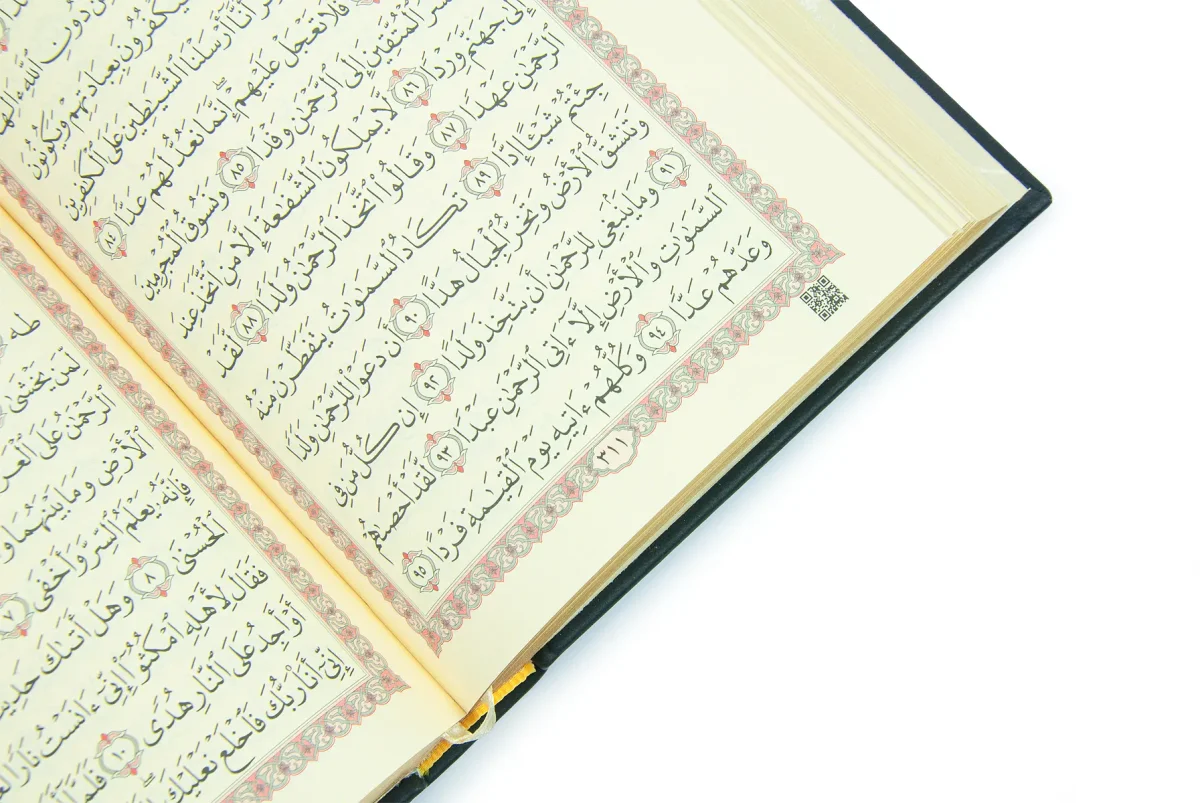 دُونِ ٱللَّهِ
سَيَكْفُرُونَ بِعِبَادَتِهِمْ وَيَكُونُونَ
أَنَّآ أَرْسَلْنَا ٱلشَّيَٰطِينَ عَلَى ٱلْكَٰفِرِينَ
فَلَا تَعْجَلْ عَلَيْهِمْ إِنَّمَا نَعُدُّ لَهُمْ عَدًّا ٨٤
ٱلْمُتَّقِينَ إِلَى ٱلرَّحْمَٰنِ وَفْدًا ٨٥ وَنَسُوقُ ٱلْمُجْرِمِينَ
إِلَىٰ جَهَنَّمَ وِرْدًا ٨٦ لَّا يَمْلِكُونَ ٱلشَّفَٰعَةَ إِلَّا مَنِ ٱتَّخَذَ عِندَ
ٱلرَّحْمَٰنِ عَهْدًا ٨٧ وَقَالُوا۟ ٱتَّخَذَ ٱلرَّحْمَٰنُ وَلَدًا ٨٨ لَّقَدْ
جِئْتُمْ شَيْـًٔا إِدًّا ٨٩ تَكَادُ ٱلسَّمَٰوَٰتُ يَتَفَطَّرْنَ مِنْهُ
وَتَنشَقُّ ٱلْأَرْضُ وَتَخِرُّ ٱلْجِبَالُ هَدًّا ٩٠ أَن دَعَوْا۟ لِلرَّحْمَٰنِ وَلَدًا
٩١ وَمَا يَنۢبَغِى لِلرَّحْمَٰنِ أَن يَتَّخِذَ وَلَدًا ٩٢ إِن كُلُّ مَن فِى
ٱلسَّمَٰوَٰتِ وَٱلْأَرْضِ إِلَّآ ءَاتِى ٱلرَّحْمَٰنِ عَبْدًا ٩٣ لَّقَدْ أَحْصَىٰهُمْ
وَعَدَّهُمْ عَدًّا ٩٤ وَكُلُّهُمْ ءَاتِيهِ يَوْمَ ٱلْقِيَٰمَةِ فَرْدًا ٩٥
٣١١
طه
لِّمَن يَخْشَىٰ
ٱلرَّحْمَٰنُ عَلَى
ٱلْأَرْضِ وَمَا بَيْنَهُمَا
فَإِنَّهُۥ يَعْلَمُ ٱلسِّرَّ وَأَخْفَى ٧
ٱلْحُسْنَىٰ ٨ وَهَلْ أَتَىٰكَ
فَقَالَ لِأَهْلِهِ ٱمْكُثُوٓا۟ إِنِّىٓ ءَانَسْتُ نَارًا
أَوْ أَجِدُ عَلَى ٱلنَّارِ هُدًى ١٠ فَلَمَّآ
إِنِّىٓ أَنَا۠ رَبُّكَ فَٱخْلَعْ نَعْلَيْكَ